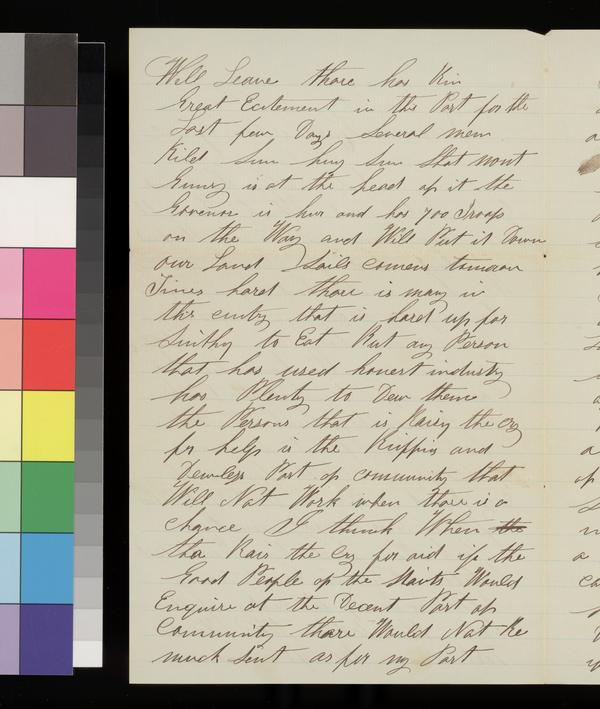 Will Leave thare has Bin
Great Ecitement in this Part for the
Last few Days Several men
Kild Sum hung Sum Shot mont
Gumry is at the head of it the
Govenor is hur and has 700 Troops
on the Way and Will Put it Down
our Land Sails comens tomorow
Times hard thare is many in
this cuntry that is hard up for
Sinthing to Eat But any Person
that has used honest industry
has Plenty to Dew them
the Persons that is Raisig the cry
for help is the and
Dewless Part of community that
Will Not Work when thare is a
chance I think When the
tha Rais the Cry for aid if the
Good People of the Staits Would
Enquire at the Decent Part of
Community thare Would Not Be
much Sent as for my Part